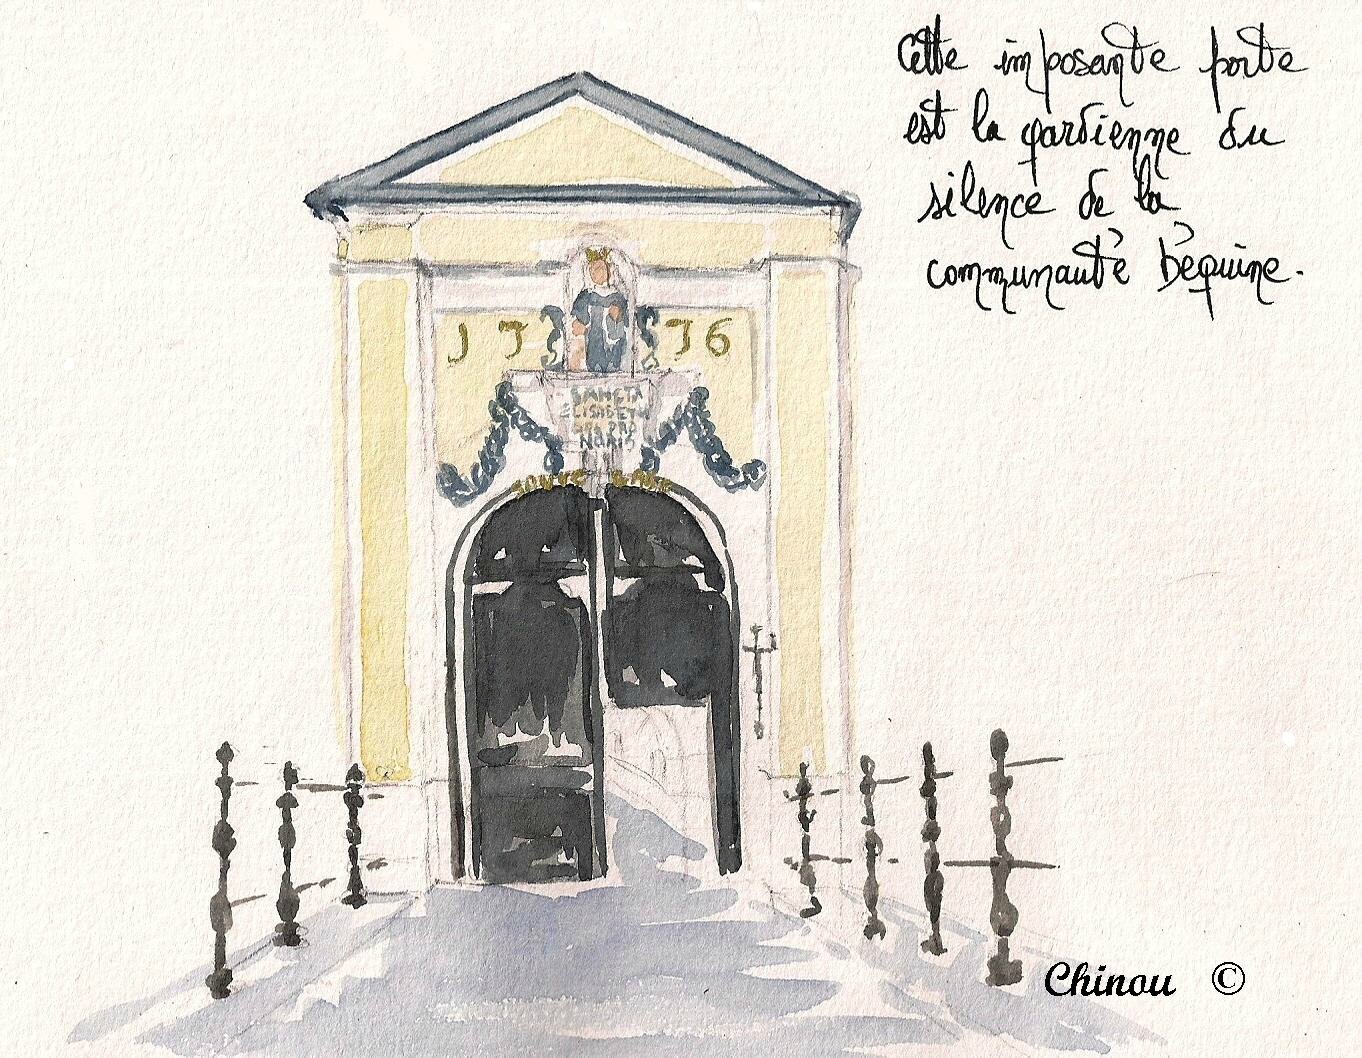 Cette imposante porte
est la gardienne du
silence de la
communauté Béguine.
1776
SANCTA
ELISABETH
ORA PRO
NOBIS
SAUVE GARDE
Chinou ©